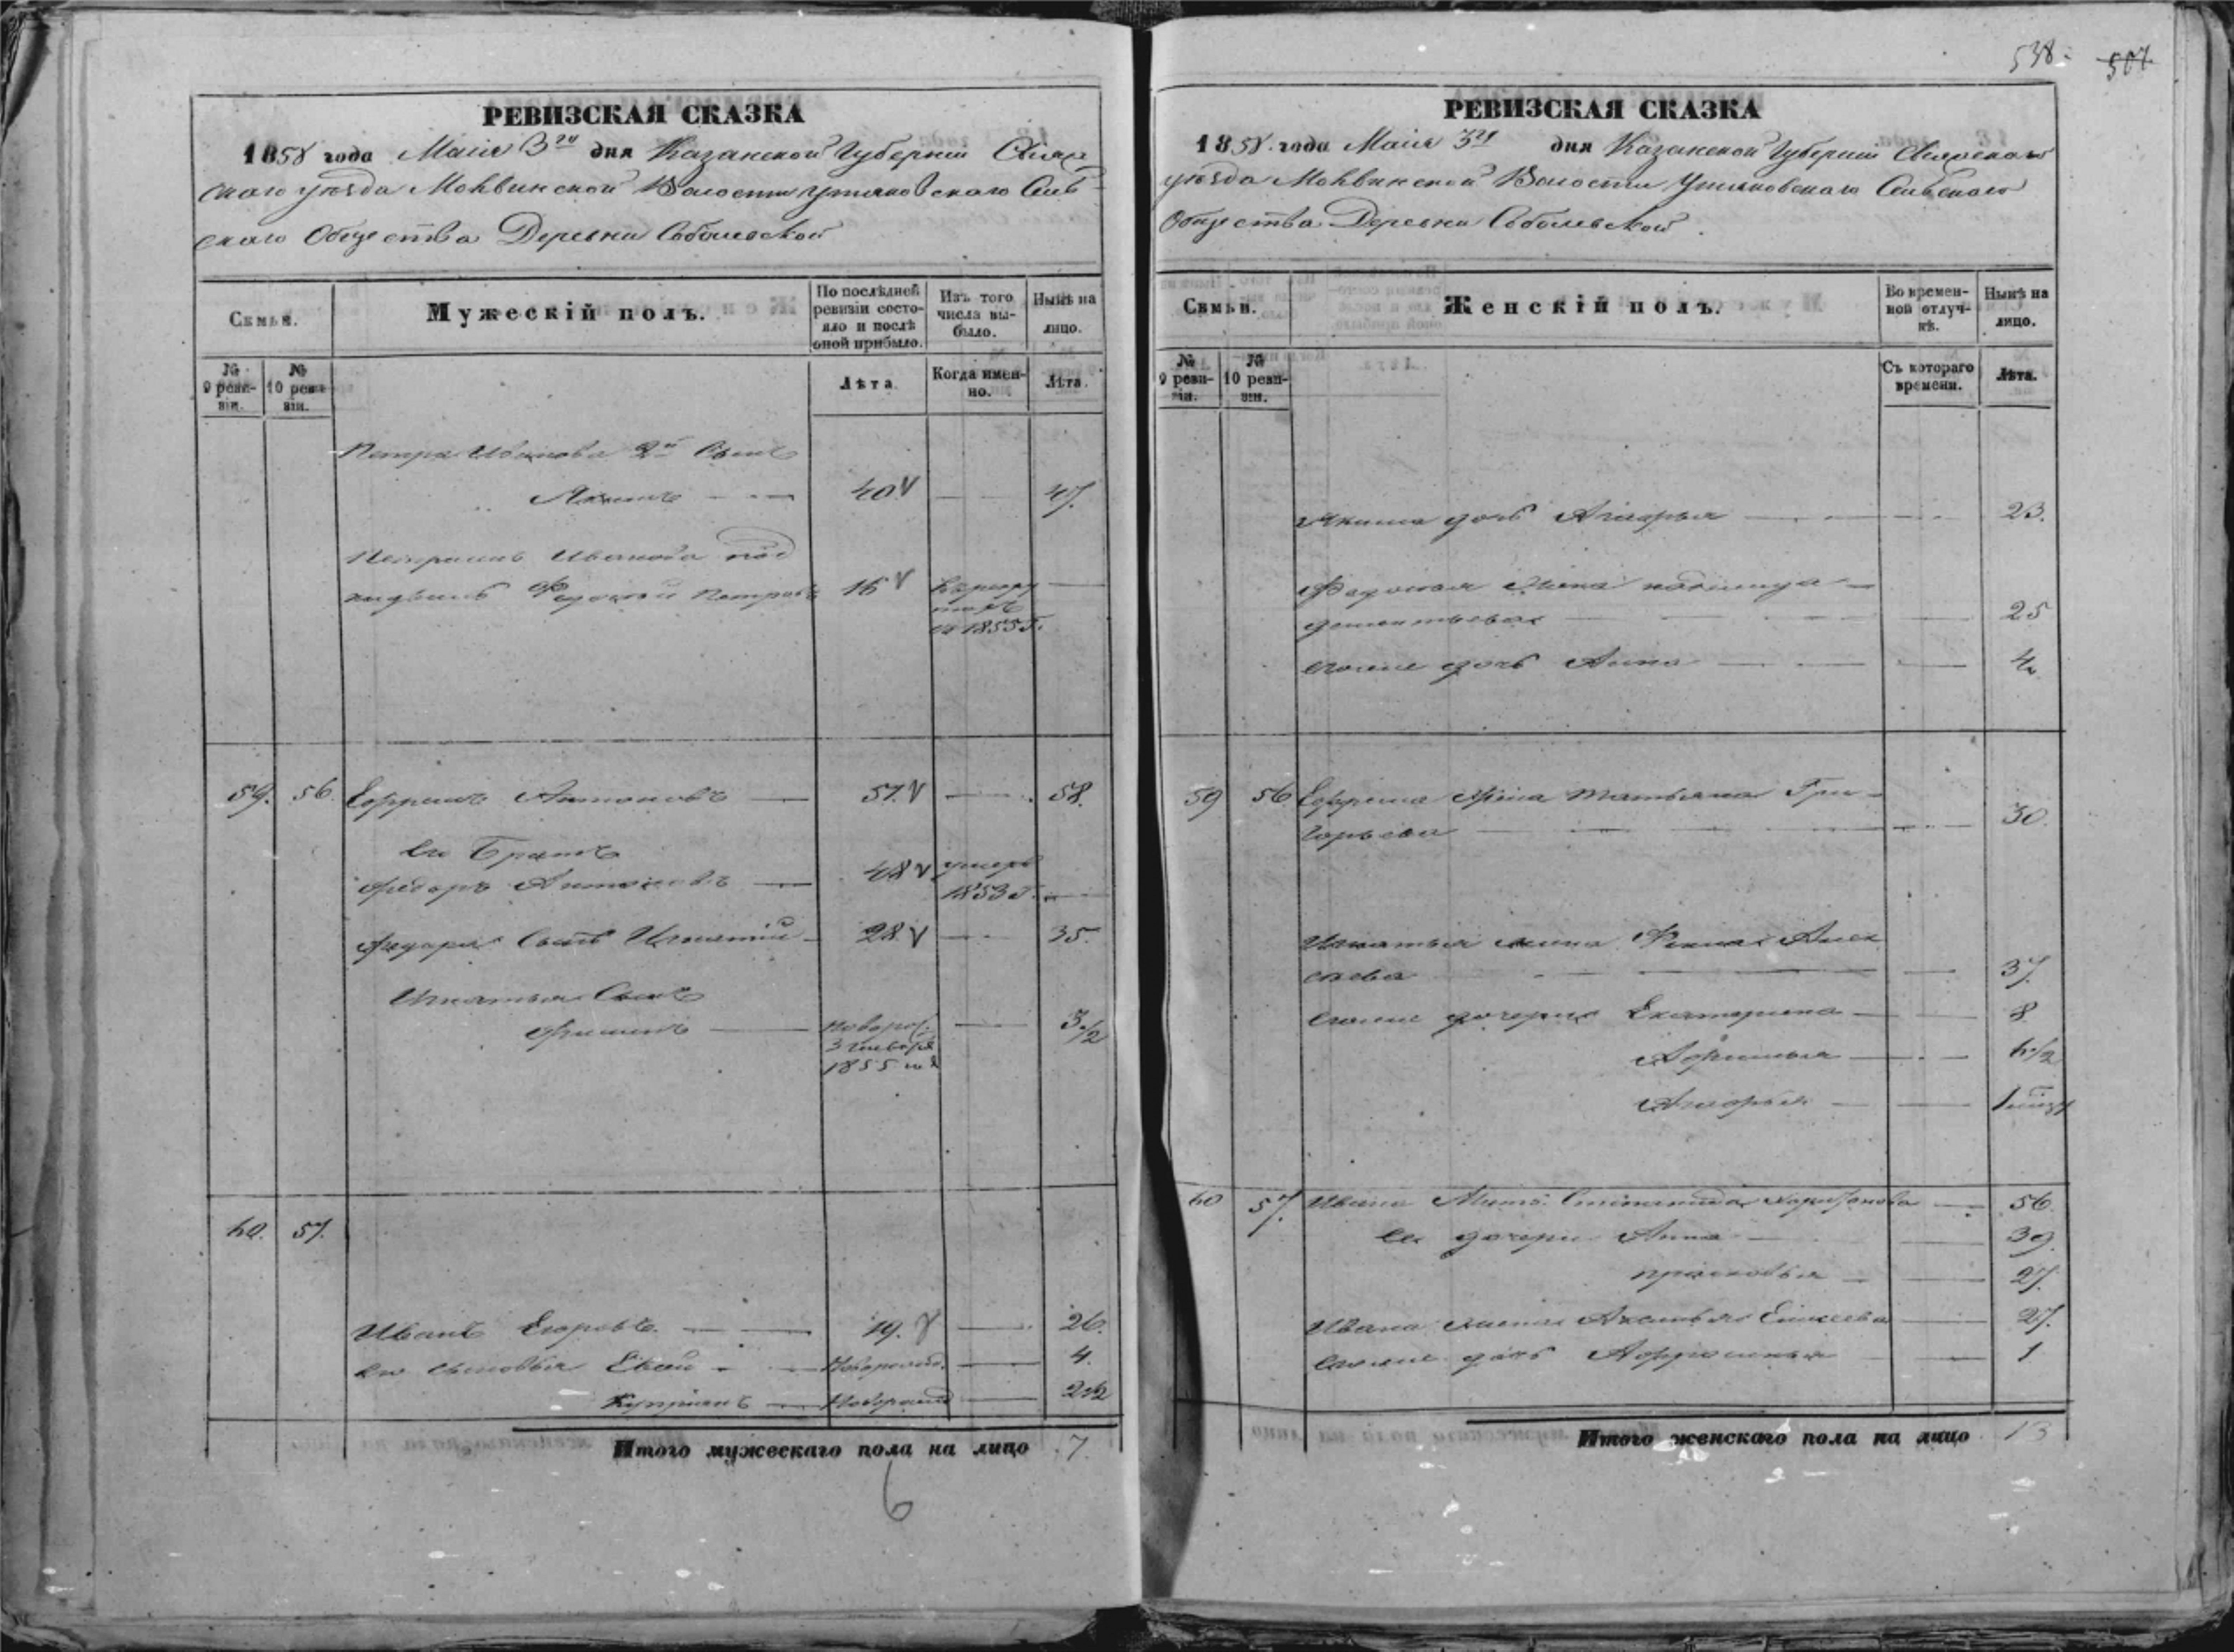 538.
507.
РЕВИЗСКАЯ СКАЗКА
1858 года Маія 3го дня Казанской Губерніи Свіяж
скаго уѣзда Моквинской Волости Утяковскаго Сель
скаго Общества Деревни Соболевской
Семьи.
Мужескій полъ.
По послѣдней ревизіи состояло и послѣ оной прибыло.
Изъ того числа выбыло.
Нынѣ на лицо.
№ 9 ревизіи.
№ 10 ревизіи.
Лѣта.
Когда именно.
Лѣта.
Петра Иванова 2й Сынъ
Акимъ 40 47.
Иванова под
кидышъ Петровъ 16
въ 1855 г.
59. 56. Ефремъ Антоновъ 51. 58.
Его Братъ
Федоръ Антоновъ 48 умеръ
1853 г.
Федора Сынъ Игнатій 28 35.
Игнатья Сынъ
новорож.
3 Генваря
1855 год
3 1/2
60. 57.
Иванъ Егоровъ. 19. 26.
его сыновья Новорожд. 4.
Купріянъ Новорожд 2 1/2
Итого мужескаго пола на лицо 7.
6
РЕВИЗСКАЯ СКАЗКА
1858 года Маія 3го дня Казанской Губерніи Свіяжскаго
уѣзда Моквинской Волости Утяковскаго Сельскаго
Общества Деревни Соболевской.
Семьи.
Женскій полъ.
Во временной отлучкѣ.
Нынѣ на лицо.
№ 9 ревизіи.
№ 10 ревизіи.
Съ котораго времени.
Лѣта.
Акима дочь Агафья 23.
жена
25
дочь Анна 4
59 56 Ефрема жена Татьяна Гри-
горьева 30.
Игнатья жена Фекла Алек
сѣева 37.
дочери Екатерина 8
Афимья 6 1/2
Агафья 1
60 57. Ивана Мать Степанида Харитонова 56.
ея дочери Анна 39.
Прасковья 27.
Ивана жена Елисеева 27.
дочь 1
Итого женскаго пола на лицо 13